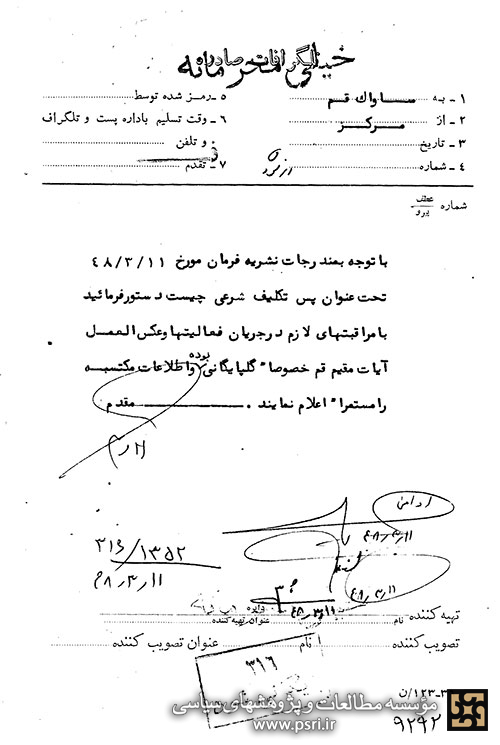 خیلی محرمانه
تلگرافات صادره
۱ـ به ساواك قم
۲ـ از مركز
۳ـ تاریخ
۴ـ شماره
۵ـ رمز شده توسط
۶ـ وقت تسلیم باداره پست و تلگراف
و تلفن
۷ـ تقدم
شماره عطف
پیرو
با توجه بمندرجات نشریه فرمان مورخ ۴۸/۳/۱۱
تحت عنوان پس تكلیف شرعی چیست دستورفرمائید
بامراقبتهای لازم درجریان فعالیتها وعكس العمل
آیات مقیم قم خصوصا" گلپایگانی بوده واطلاعات مكتسبه
را مستمرا" اعلام نمایند . مقدم
۳۱۶/۱۳۵۲
۴۸/۳/۱۱
۴۸/۳/۱۱
۴۸/۳/۱۱
۴۸/۳/۱۱
تهیه كننده
نام
عنوان تهیه كننده
تصویب كننده
نام
عنوان تصویب كننده
۳۱۶
۳-۱۲۳/ن
مؤسسه مطالعات و پژوهشهای سیاسی
www.psri.ir
۹۲۹۲